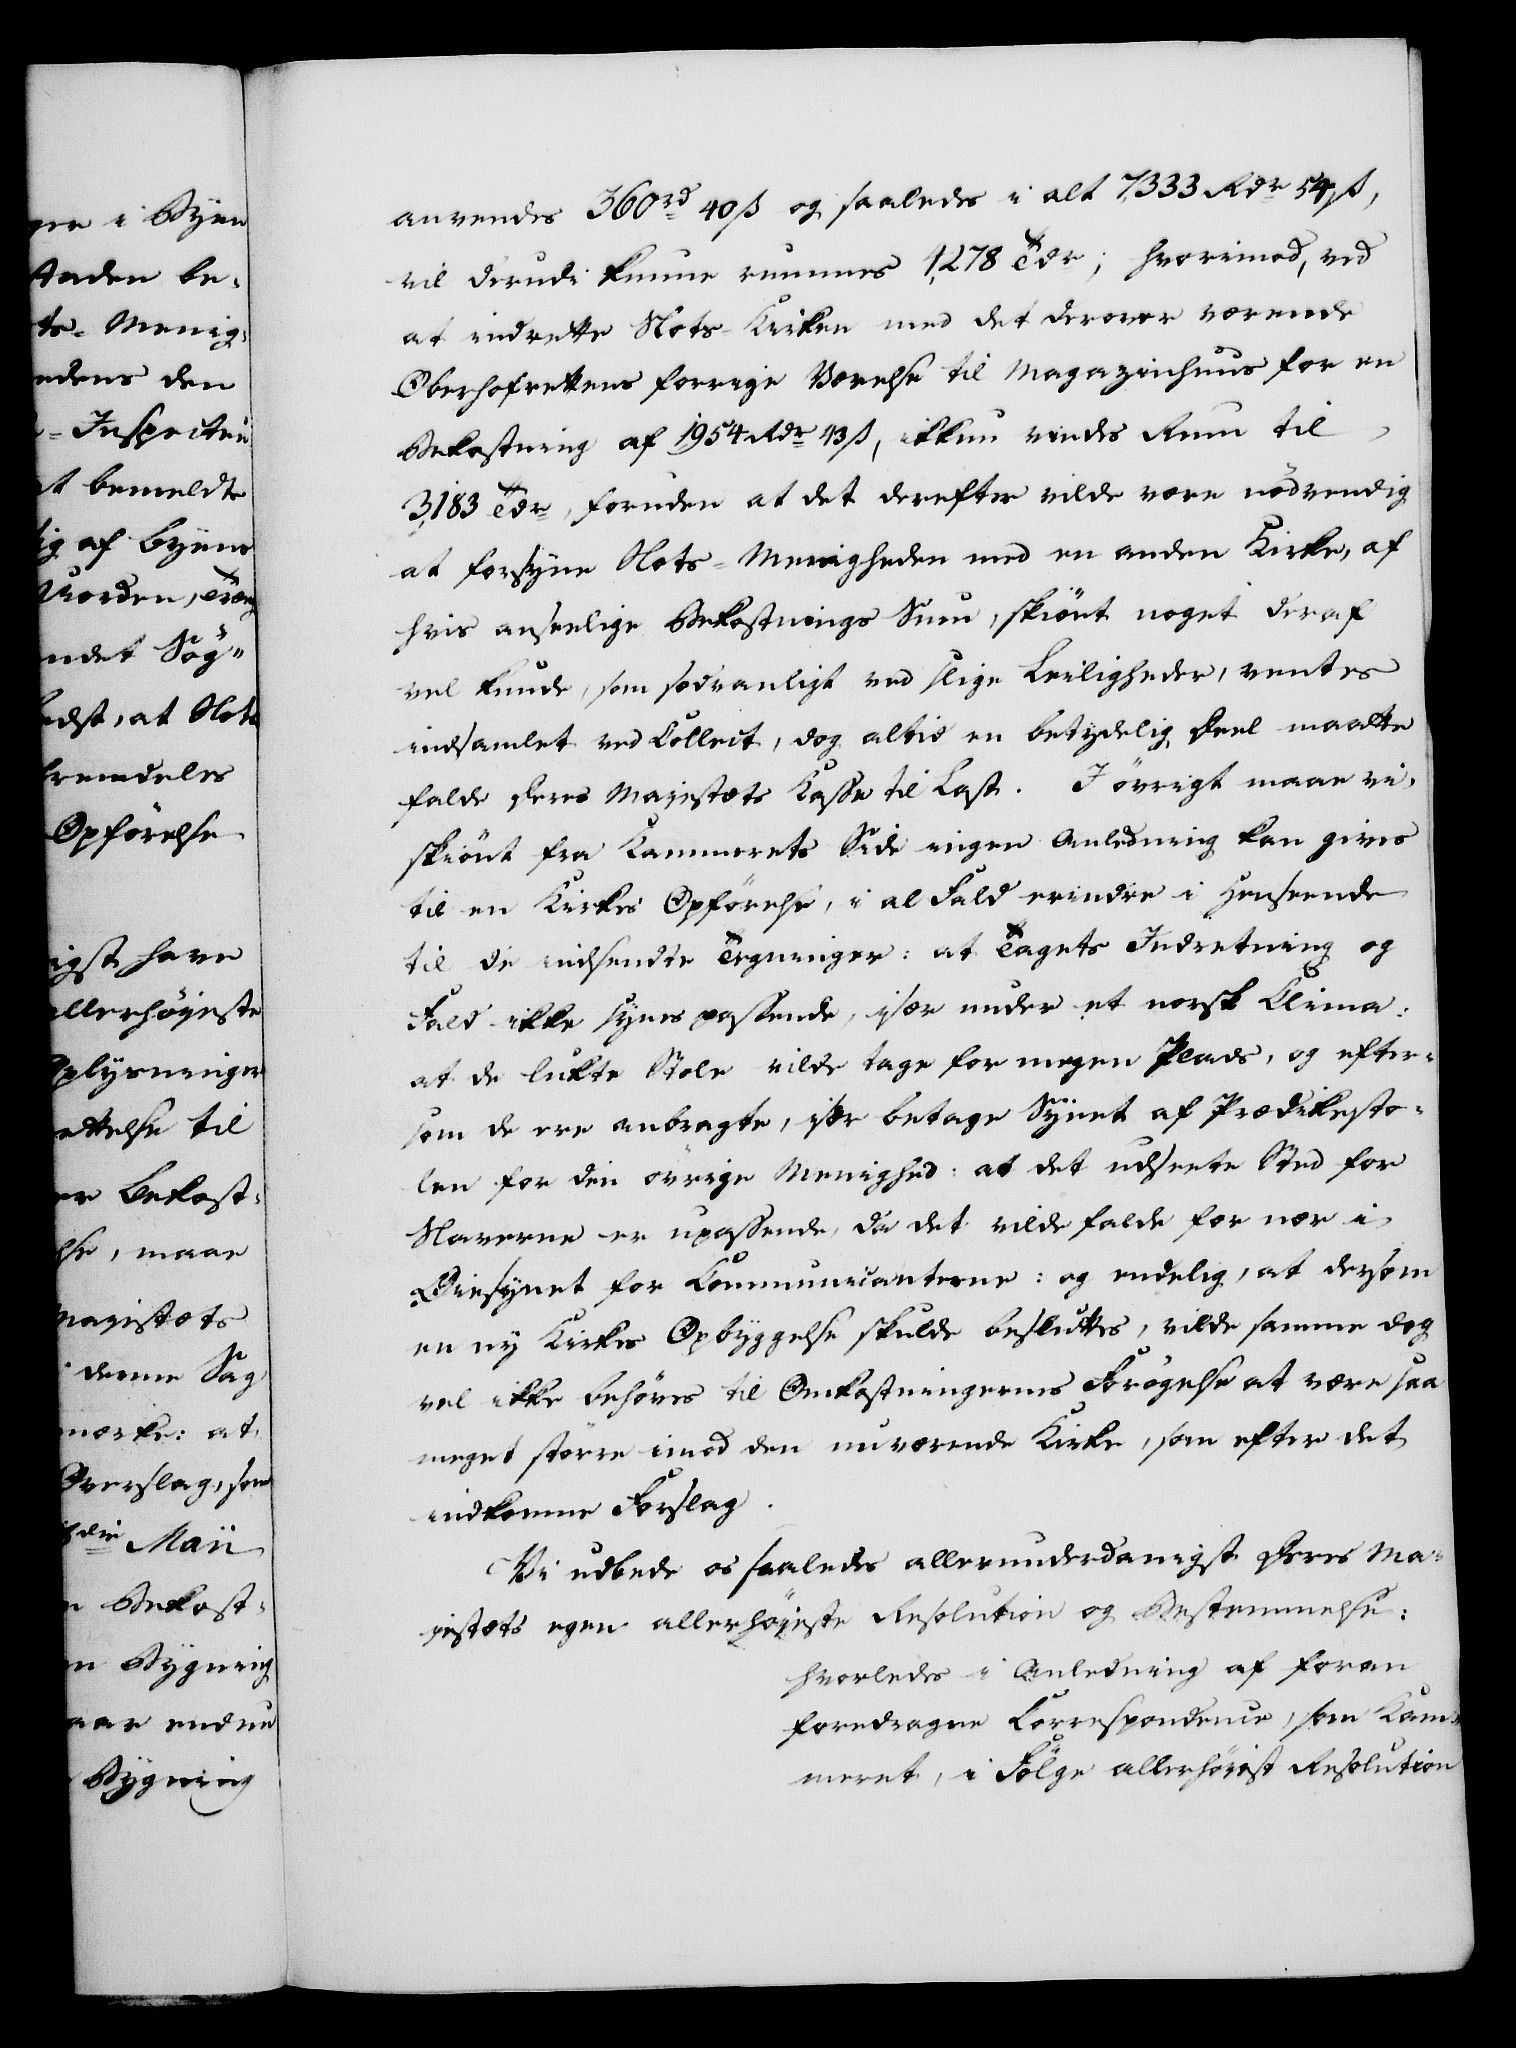 gere i Byen
staden be-
ts-Menig-
edens den
-Inspecteu
at bemeldte
lig af Byens
Norden, Træng
ndet Søg"
edst, at Slots
fremdeles
Opførelse
igst have
allerhøjeste
plysninger
ettelse til
er Bekost-
lse, maae
Majestæts
denne Sag
mærke: at
Overslag, som
die Maii
n Bekost-
en Bygning
aar endnu
Bygning
anvendes 360 rd 40 ß og saaledes i alt 7,333 Rdr 54 ß,
vil derudi kunne rummes 1,278 Tdr; hvorimod, ved
at indrette Slots-Kirken med det derover værende
Oberhofrettens forrige Værelse til Magazinhuus for en
Bekostning af 1954 Rdr 43 ß, ikkun vindes Rum til
3,183 Tdr, foruden at det derefter vilde være nødvendig
at forsyne Slots-Menigheden med en anden Kirke, af
hvis anseelige Bekostnings Sum, skiønt noget deraf
vel kunde, som sædvanligt ved slige Leiligheder, ventes
indsamlet ved Collect, dog altid en betydelig Deel maatte
falde Deres Majestæts Kasse til Last. I øvrigt maae vi,
skiønt fra Kammerets Side ingen Anledning kan gives
til en Kirkes Opførelse, i al Fald erindre i Henseende
til de indsendte Tegninger: at Tagets Indretning og
Fald ikke synes passende, især under et norsk Clima:
at de lukte Stole vilde tage for megen Plads, og efter-
som de ere anbragte, især betage Synet af Prædikesto-
len for den øvrige Menighed: at det udseete Sted for
Slaverne er upassende, da det vilde falde for nær i
Øiesynet for Communicanterne: og endelig, at dersom
en ny Kirkes Opbyggelse skulde besluttes, vilde samme dog
vel ikke behøves til Omkostningernes Forøgelse at være saa
meget større imod den nuværende Kirke, som efter det
indkomne Forslag.
Vi udbede os saaledes allerunderdanigst Deres Ma-
jestæts egen allerhøjeste Resolution og Bestemmelse:
hvorledes i Anledning af foran
foredragne Correspondence, som Kam-
meret, i Følge allerhøiest Resolution